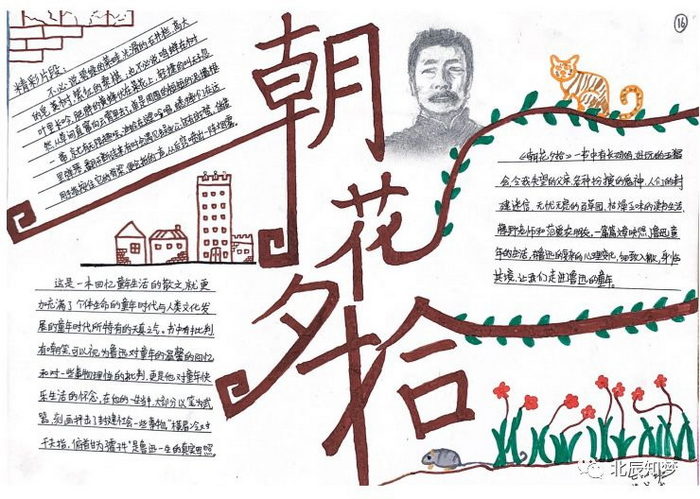 16
精彩片段:
不必说碧绿的菜畦,光滑的石井栏,高大
的皂荚树,紫红的桑椹;也不必说鸣蝉在树
叶里长吟,肥胖的黄蜂伏在菜花上,轻捷的叫天子忽
然从草间直窜向云霄里去了。单是周围的短短的泥墙根
一带,就有无限趣味。油蛉在这里低唱,蟋蟀们在这
里弹琴。翻开断砖来,有时会遇见蜈蚣;还有斑蝥,倘若
用手指按住它的脊梁,便会的一声,从后窍喷出一阵烟雾。
朝花夕拾
《朝花夕拾》一书中有长妈妈,
会,令我失望的父亲,各种扮演的鬼神,人们的封
建迷信,无忧无虑的百草园,枯燥乏味的读书生活,
藤野先生和范爱农朋友。一篇篇着映照了鲁迅童
年的生活,鲁迅的心理变化,细致入微,身临
其境,让我们走进鲁迅的童年。
这是一本回忆童年生活的散文,就更
加充满了个体生命的童年时代与人类文化发
展的童年时代所特有的天真之气。书中有批判
有嘲笑,可以视为鲁迅对童年的温馨的回忆
和对一些事物理性的批判,更是他对童年快
乐生活的怀念,在他的一生中,大部分以笔为武
器,刻画抨击了封建社会一些事物"横眉冷对
千夫指,俯首甘为孺子牛"是鲁迅一生的真实写照。
北辰知梦